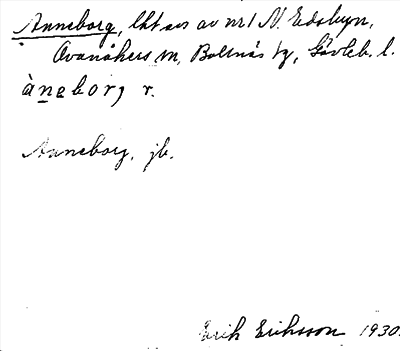 Anneborg, lht ers av nr 1 N. Edsbyn,
Ovanåkers sn, Bollnäs tg, Gävleb. l.
àneborj r.
Anneborg, jb.
Erik Eriksson 1930.